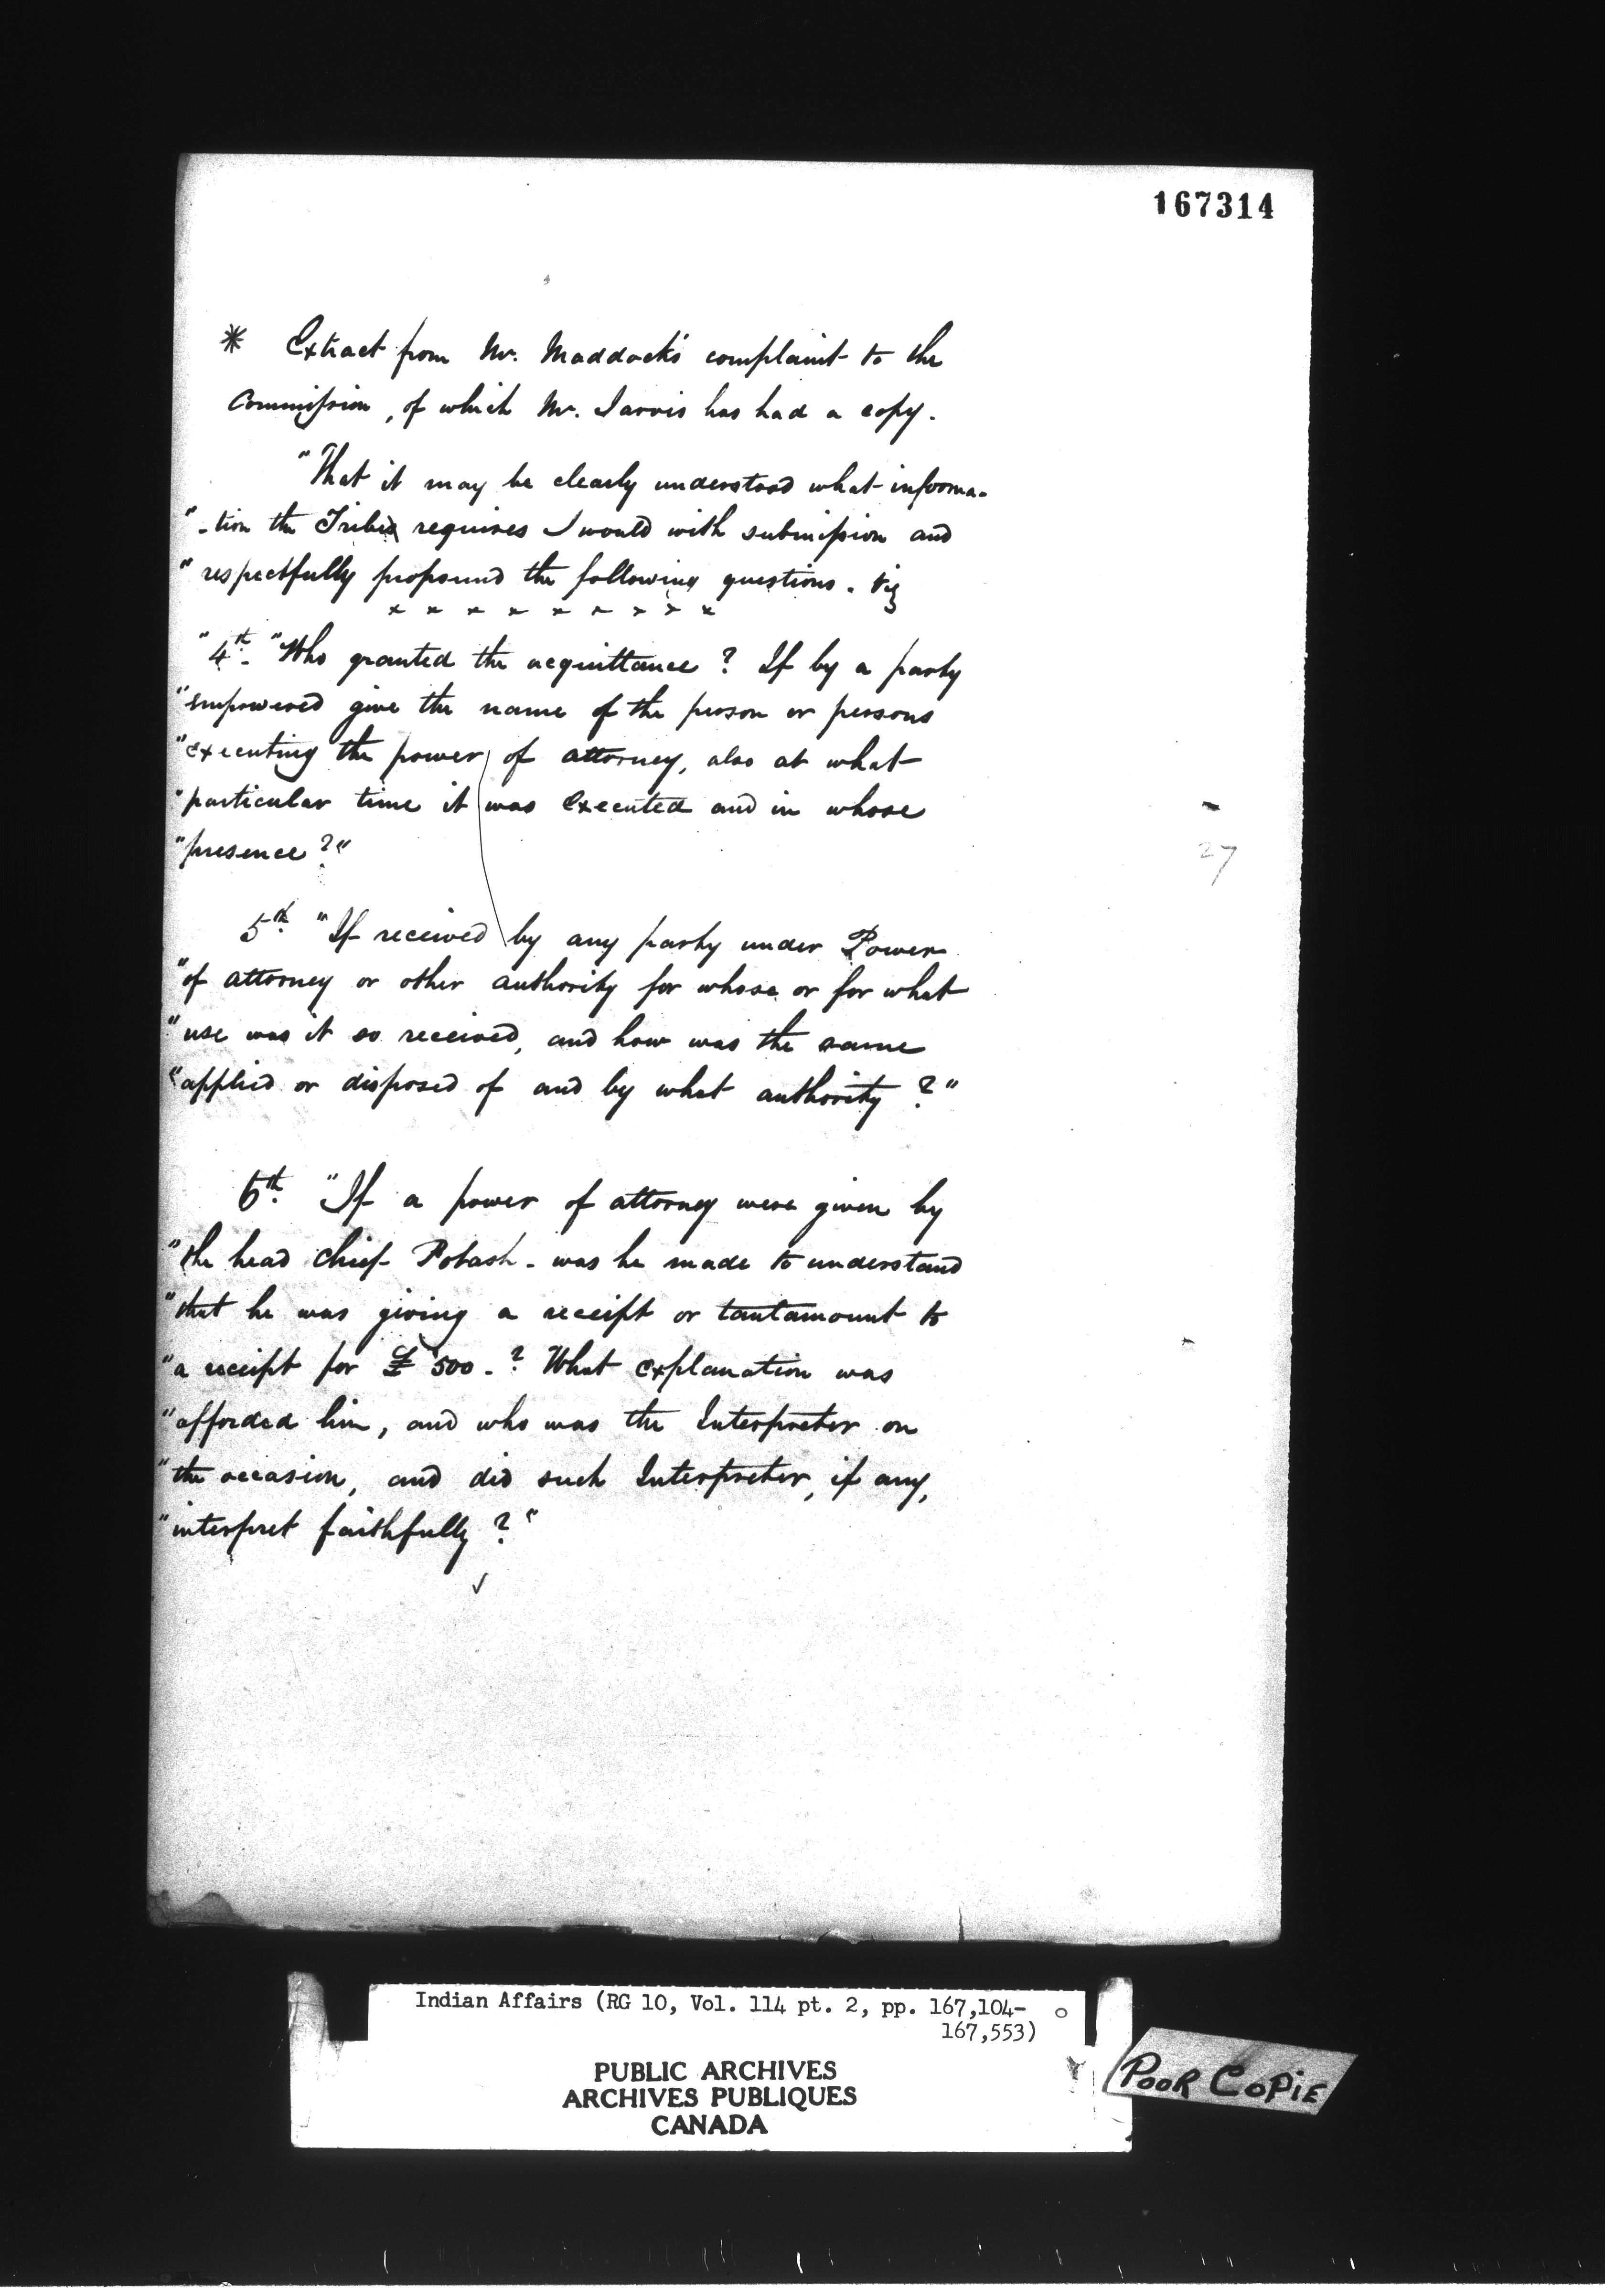 167314
* Extract from Mr. Maddock's complaint to the
Commission, of which Mr. Jarvis has had a copy.
"That it may be clearly understood what informa-
"-tion the Tribe requires I would with submission and
"respectfully propound the following questions. viz
x x x x x x x x x
"4th. "Who granted the acquittance? If by a party
"empowered give the name of the person or persons
"executing the power of attorney, also at what
"particular time it was executed and in whose
"presence?"
27
5th. "If received by any party under Power
"of attorney or other authority for whose or for what
"use was it so received, and how was the same
"applied or disposed of and by what authority?"
6th. "If a power of attorney were given by
"the head chief Potash - was he made to understand
"that he was giving a receipt or tantamount to
"a receipt for £500-? What explanation was
"afforded him, and who was the Interpreter on
"the occasion, and did such Interpreter, if any,
"interpret faithfully?"
Indian Affairs (RG 10, Vol. 114 pt. 2, pp. 167,104-
167,553)
PUBLIC ARCHIVES
ARCHIVES PUBLIQUES
CANADA
POOR COPIE